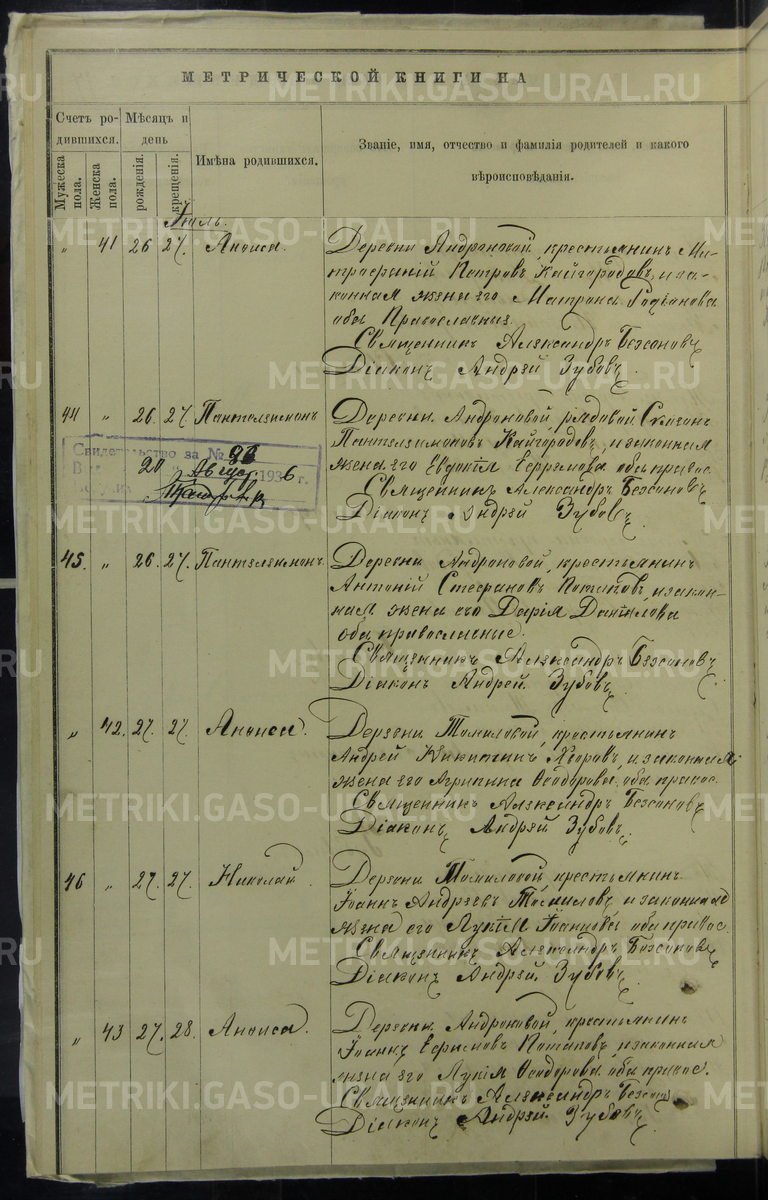 МЕТРИЧЕСКОЙ КНИГИ НА
Счетъ ро-
дившихся.
Мѣсяцъ и
день
Мужеска
пола.
Женска
пола.
рожденія.
крещенія.
Имѣна родившихся.
Званіе, имя, отчество и фамилія родителей и какого
вѣроисповѣданія.
Іюль.
„ 41 26 27. Анѳиса. Деревни Андроновой, крестьянинъ Ми-
трофаній Петровъ Кайгородовъ, и за-
конная жена его Матрона Родіонова
оба Православные.
Священникъ Александръ Безсоновъ
Діаконъ Андрей Зубовъ
44 „ 26. 27. Пантелеимонъ Деревни Андроновой, рядовой
Пантелеимоновъ Кайгородовъ, и законная
жена его Евдокія Ефремова оба правос.
Священникъ Александръ Безсоновъ
Діаконъ Андрей Зубовъ
Свидетельство за № 86
20 Август 1936 г.
45. „ 26. 27. Пантелеимонъ. Деревни Андроновой, крестьянинъ
Антоній Стефановъ Потаповъ, и закон-
ная жена его Дарія Даніилова
оба православные.
Священникъ Александръ Безсоновъ
Діаконъ Андрей Зубовъ
„ 42. 27. 27. Анѳиса. Деревни Томиловой, крестьянинъ
Андрей Никитинъ и законная
жена его Агрипина Ѳеодорова, оба правос.
Священникъ Александръ Безсоновъ
Діаконъ Андрей Зубовъ
46 „ 27. 27. Николай Деревни Томиловой, крестьянинъ
Іоаннъ Андреевъ Томиловъ, и законная
жена его Лукія Іоаннова оба правос.
Священникъ Александръ Безсоновъ
Діаконъ Андрей Зубовъ
„ 43 27. 28. Анѳиса. Деревни Андроновой, крестьянинъ
Іоаннъ Ефимовъ Потаповъ, и законная
жена его Лукія Ѳеодорова, оба правос.
Священникъ Александръ Безсоновъ
Діаконъ Андрей Зубовъ
METRIKI.GASO-URAL.RU